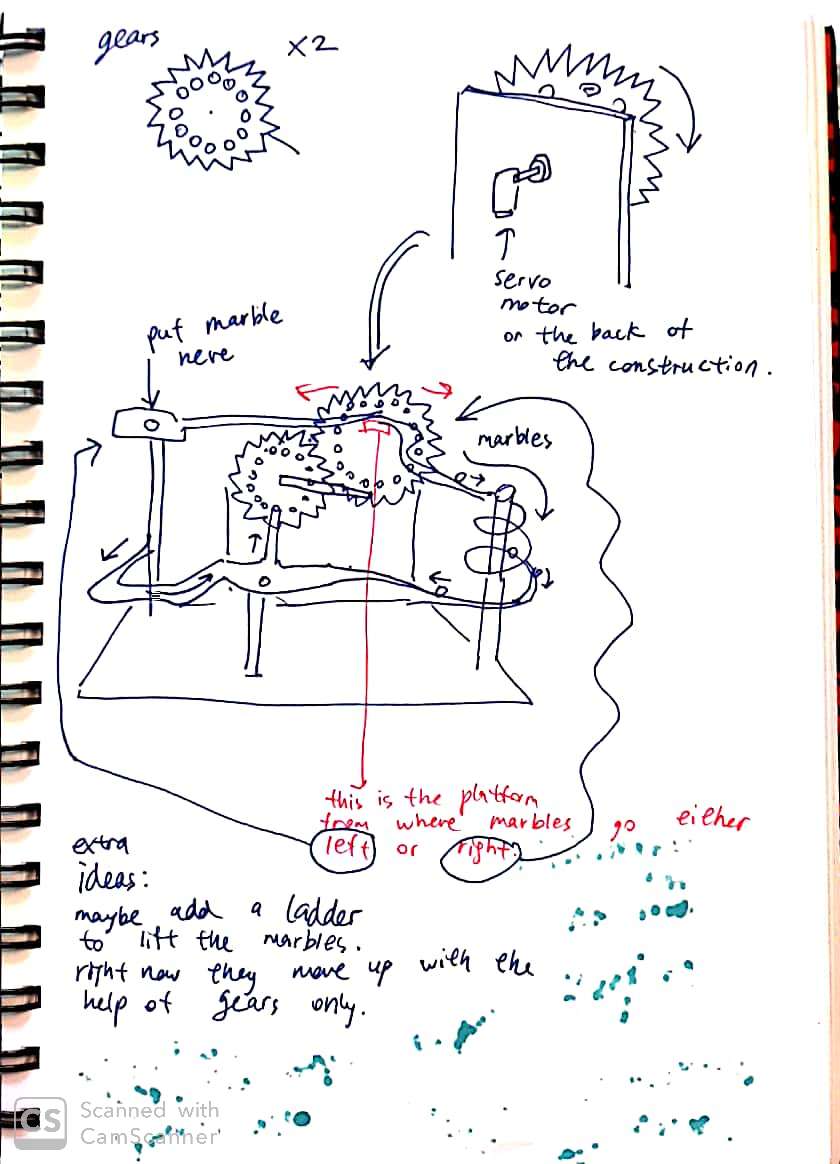 gears
x2
servo
motor
on the back of
the construction.
put marble
here
marbles
this is the platform
from where marbles go either
left or right.
extra
ideas:
maybe add a ladder
to lift the marbles.
right now they move up with the
help of gears only.
CS
Scanned with
CamScanner